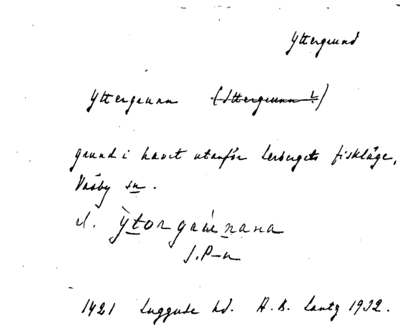 Yttergrund
Yttergrunn (Yttergrunn L)
grund i havet utanför Lerbergets fiskläge,
Väsby sn.
J.P-n
1421 Luggude hd. A.B. Lantz 1932.